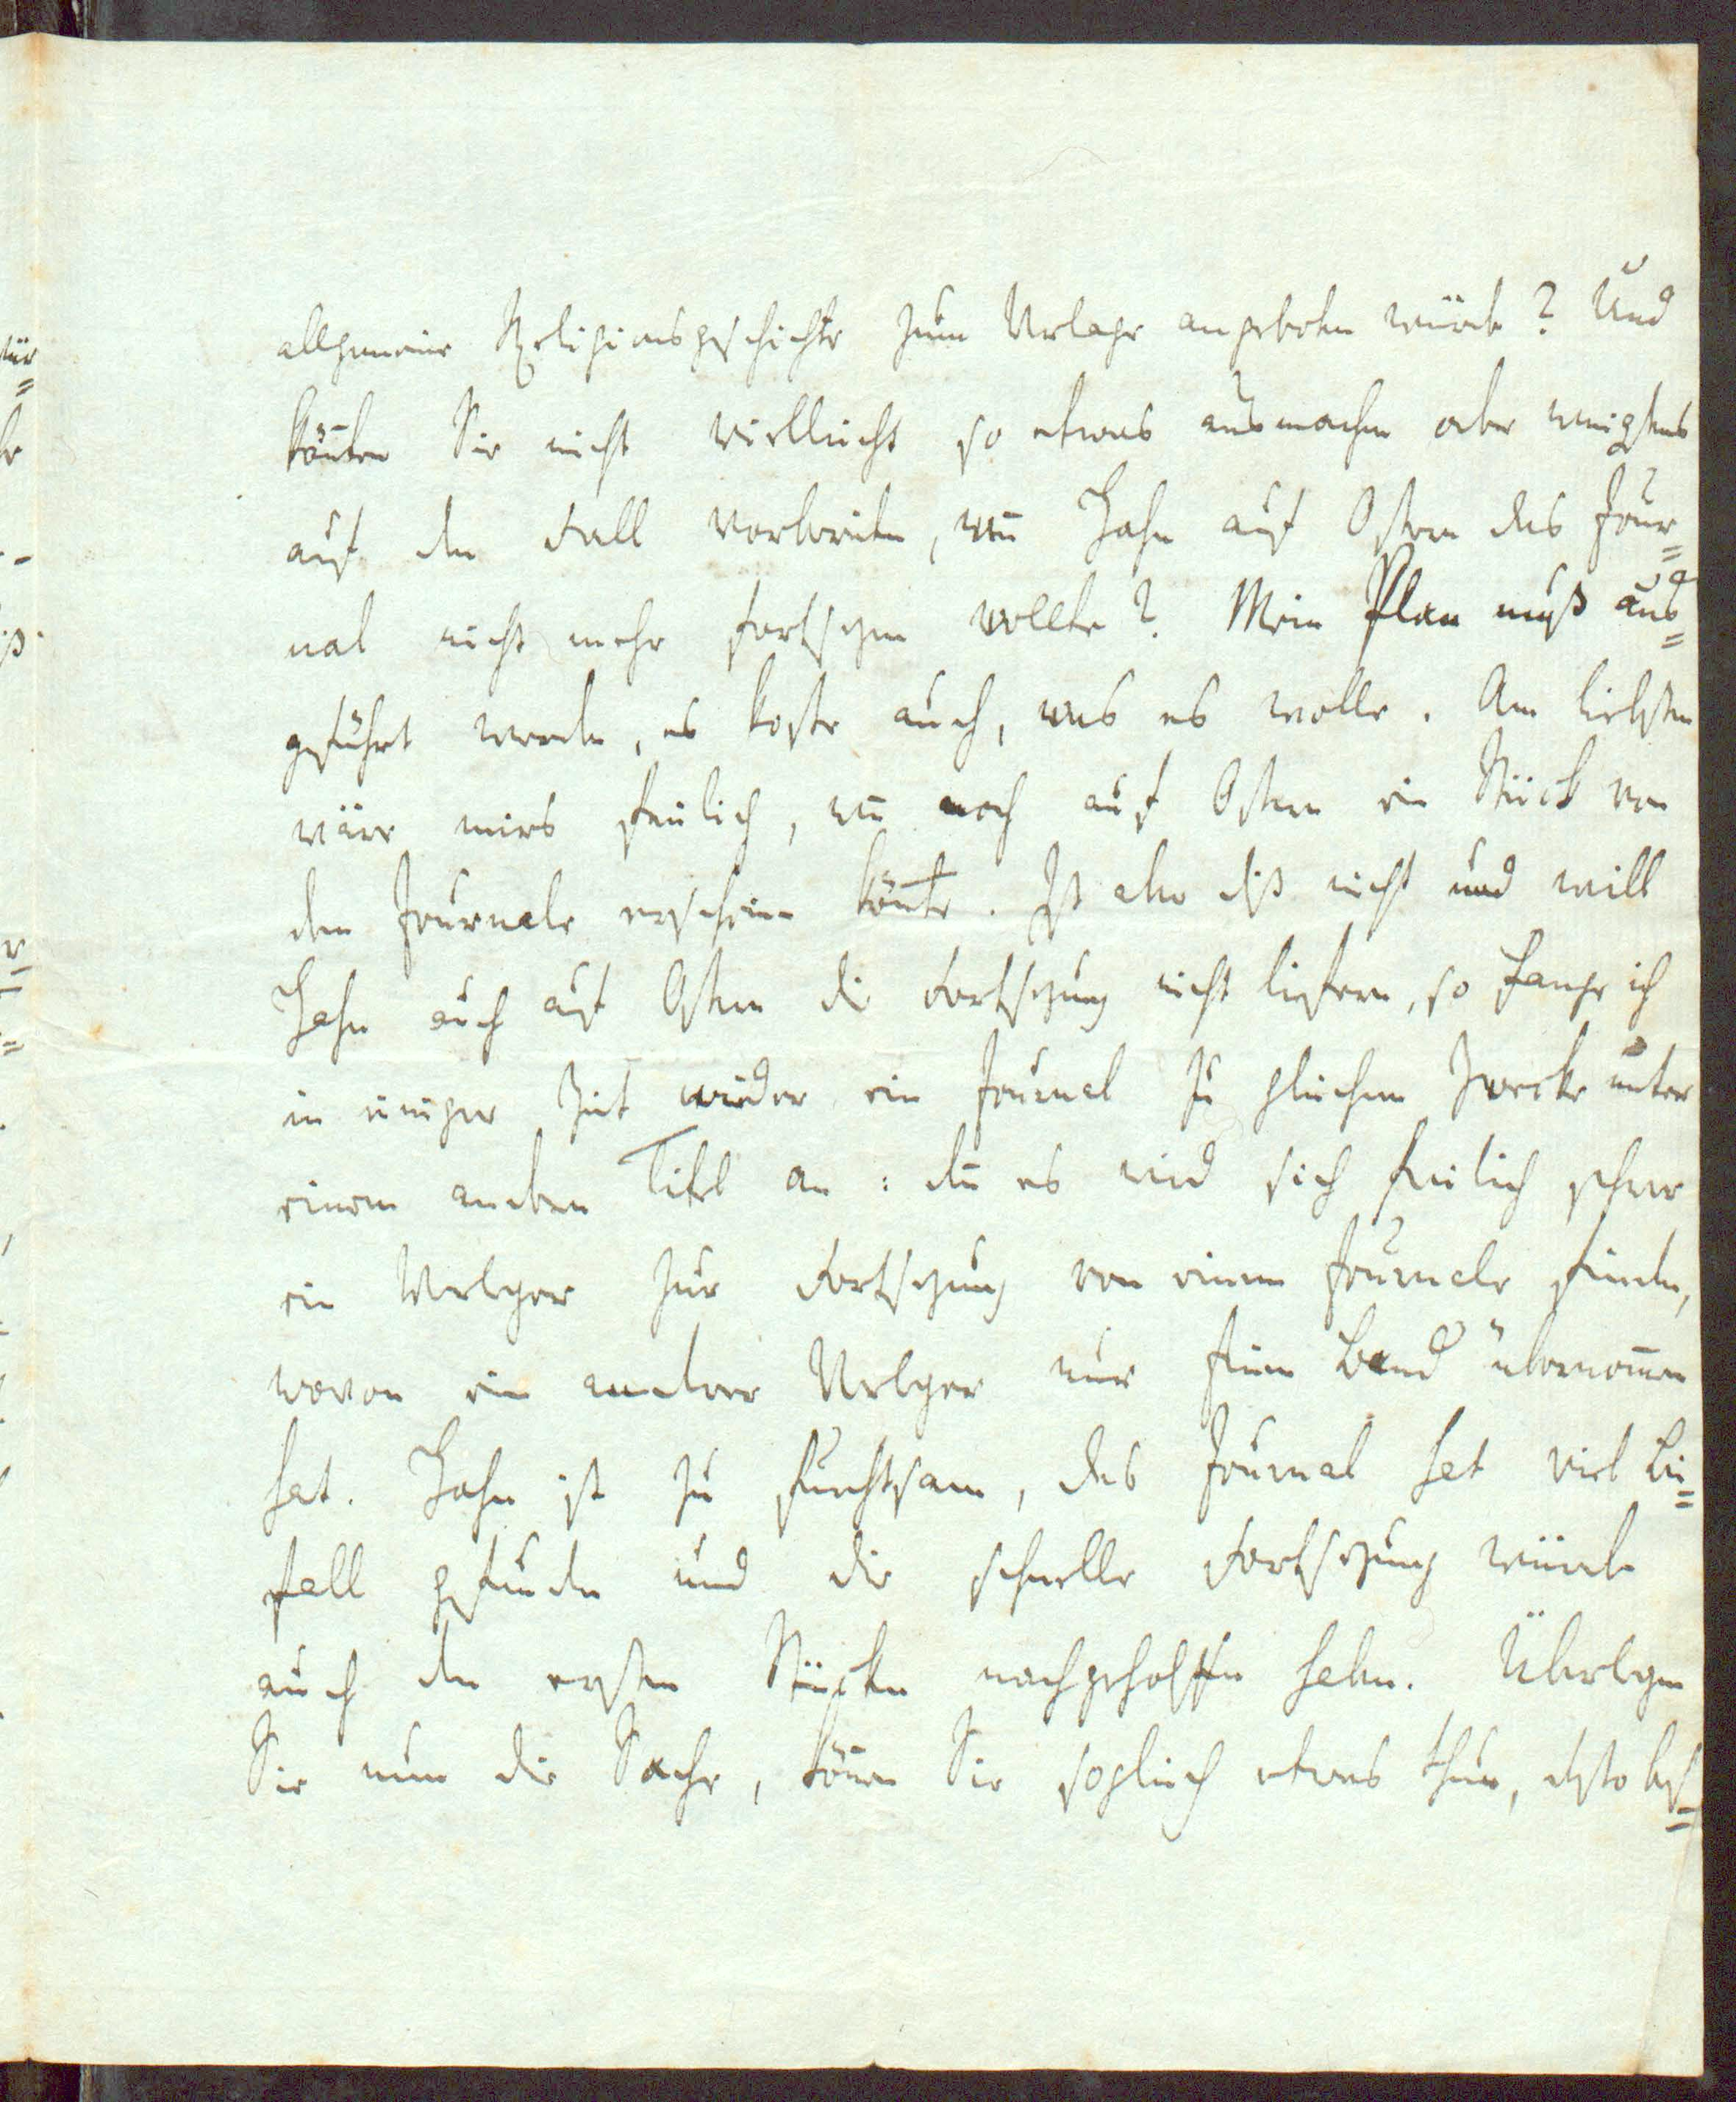 allgemeine Religionsgeschichte zum Verlage angeboten würde? Und
könten Sie nicht vielleicht so etwas ausmachen oder wenigstens
auf den Fall vorbereiten, wenn Hahn auf Ostern das Jour=
nal nicht mehr fortsezen wollte? Mein Plan muß aus=
geführt werden, es koste auch, was es wolle. Am liebsten
wäre mirs freilich, wenn noch auf Ostern ein Stück von
dem Journale erscheinen könte. Ist aber diß nicht und will
Hahn auch auf Ostern die Fortsezung nicht liefern, so fange ich
in einiger Zeit wieder ein Journal zu gleichem Zwecke unter
einem andern Titel an: denn es wird sich freilich schwer
ein Verleger zur Fortsezung von einem Journale finden,
wovon ein anderer Verleger nur Einen Band übernommen
hat. Hahn ist zu furchtsam, das Journal hat viel Bei=
fall gefunden und die schnelle Fortsezung würde
auch den ersten Stücken nachgeholffen haben. Überlegen
Sie nun die Sache, können Sie sogleich etwas thun, desto bes=